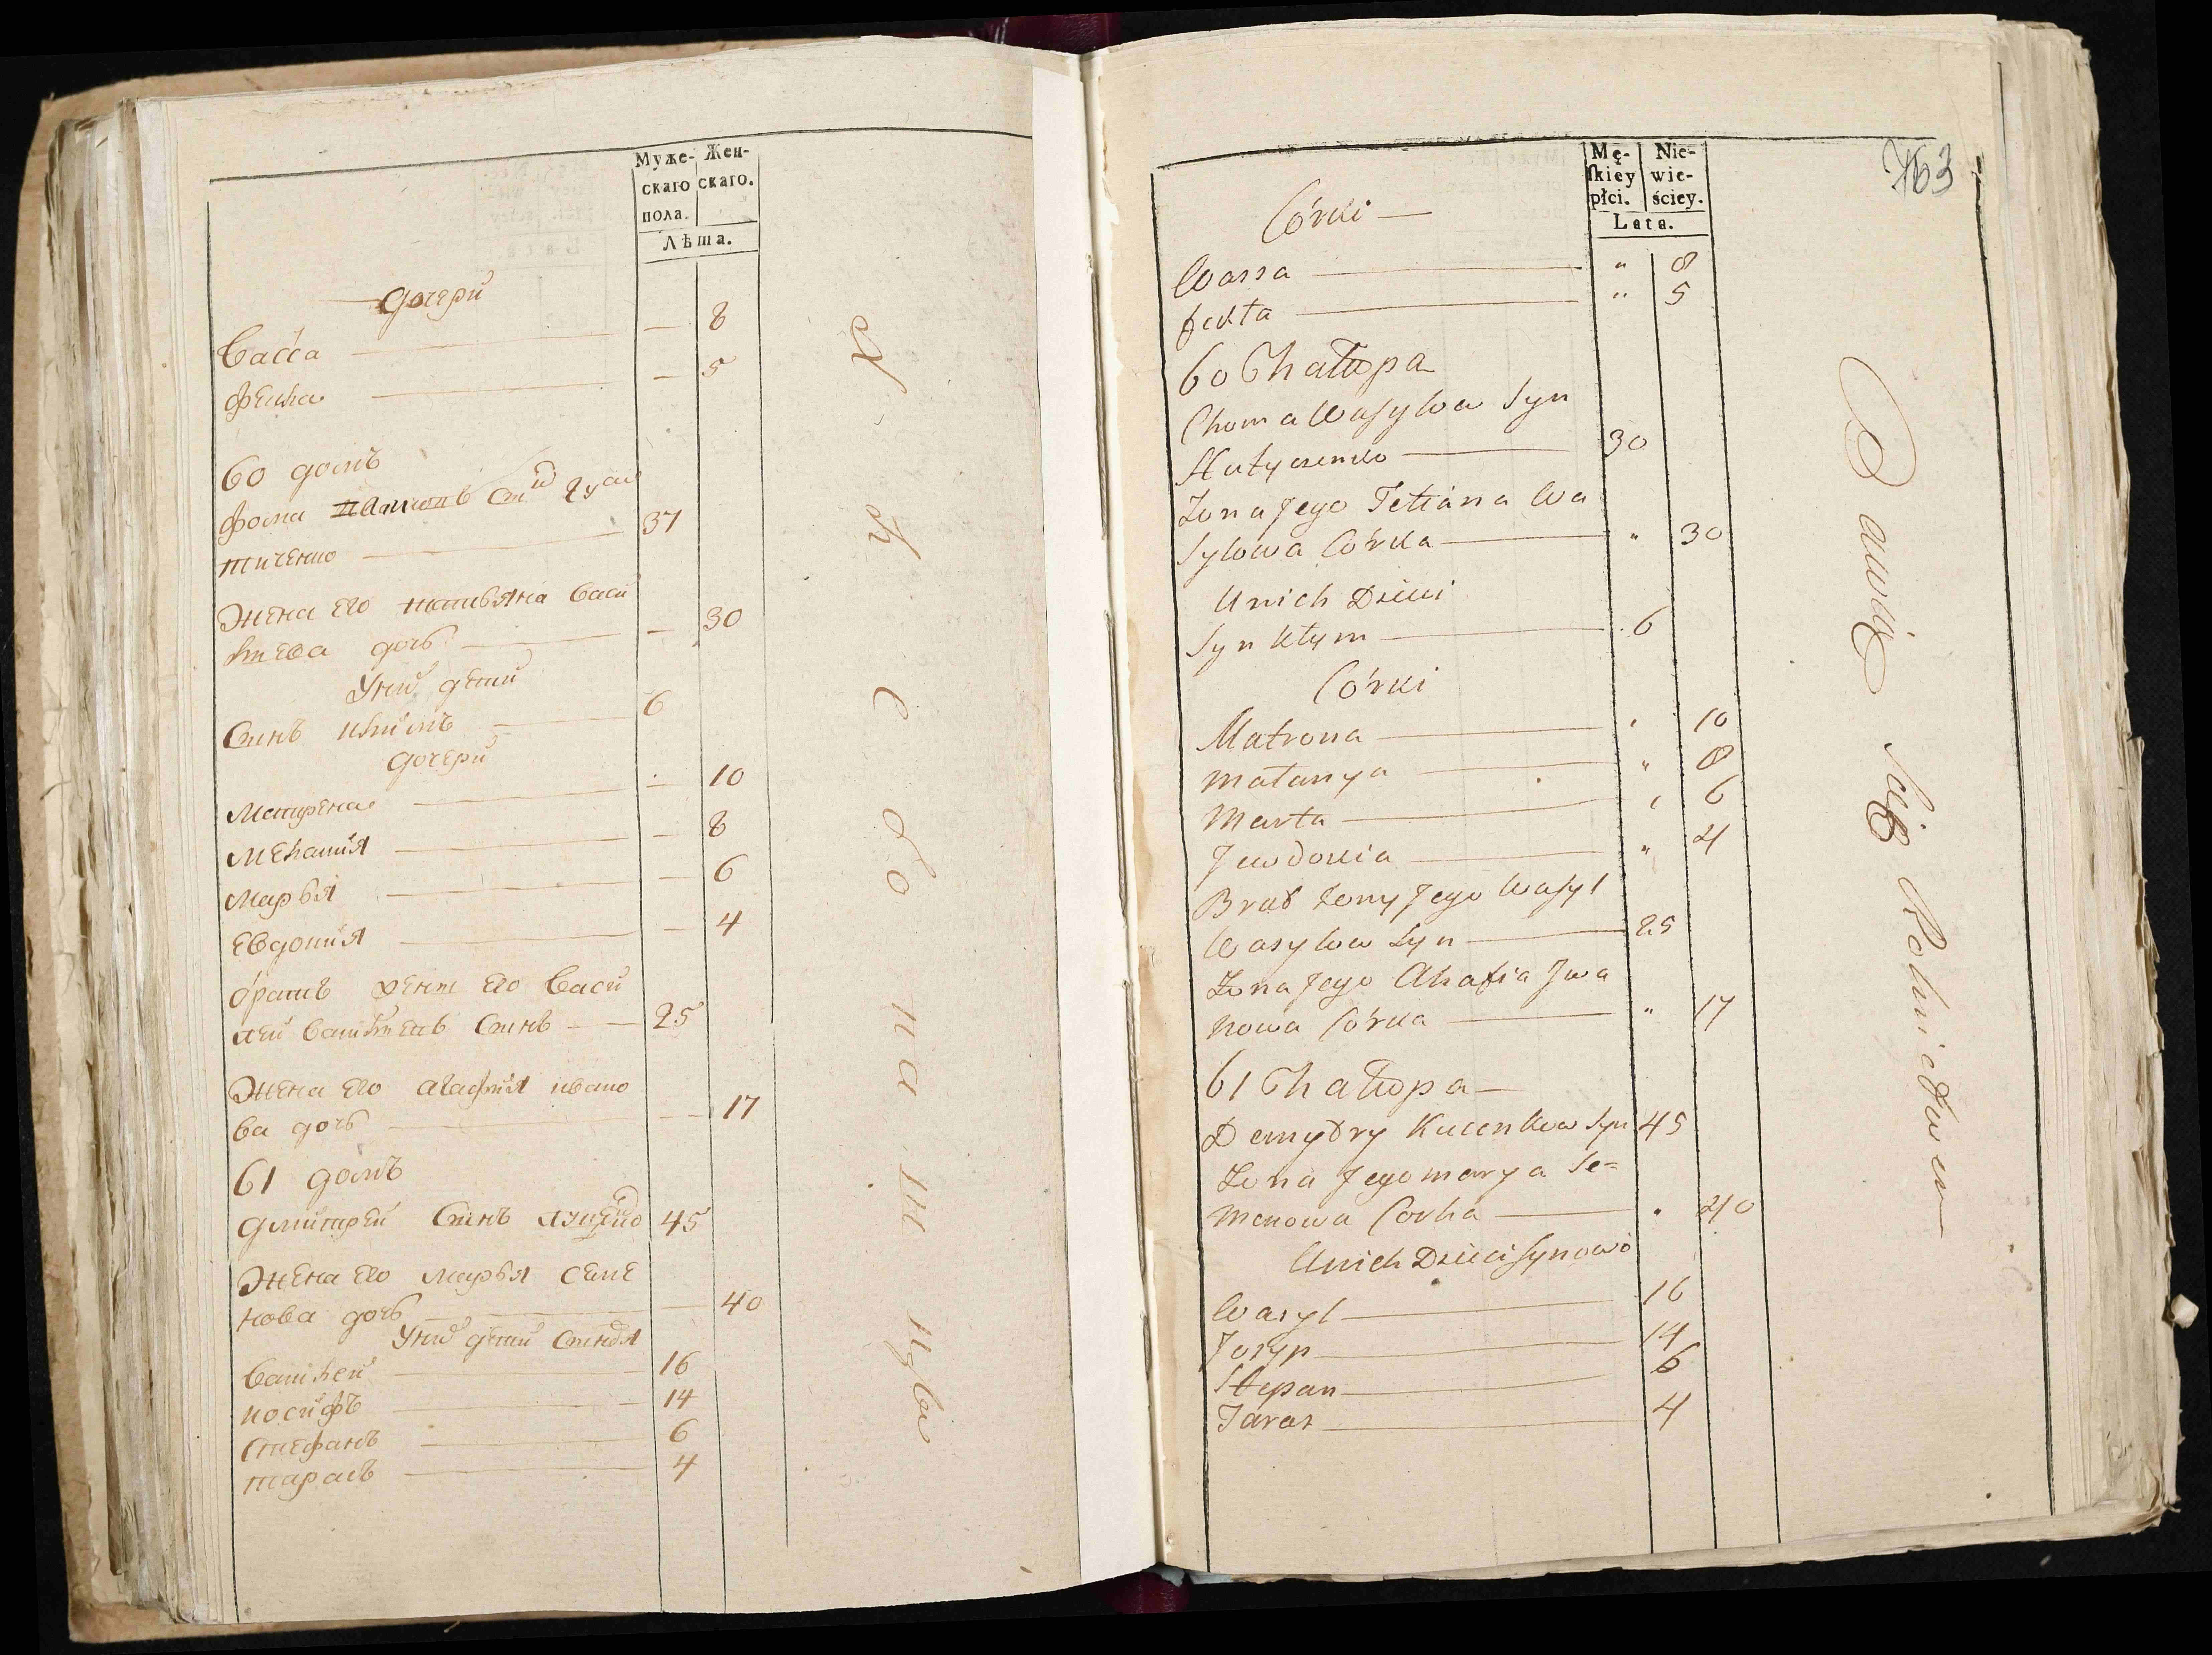 Муже- Жен-
скаго скаго.
пола.
Лѣта.
дочери
Васса — 8
Фекла — 5
60 домъ
Фома
тиченко 37
Жена его татьяна Васи
льева дочь — 30
У них дети
Синъ клим 6
дочери
Матрена — 10
Мелания — 8
Марья — 6
Евдокия — 4
братъ жены его Васи
лей Васильевъ Синъ — 25
Жена его агафия ивано
ва дочь — 17
61 домъ
Дмитрей Синъ 45
Жена его марья семе
нова дочь — 40
У них дети Синовя
Василей 16
иосифъ 14
Стефанъ 6
тарасъ 4
763
Mę- Nie-
skiey wie-
płci. ściey.
Lata.
Córki —
Wassa — " 8
fekła — " 5
60 Chałupa
Choma Wasylow Syn
Hutyczenko — 30
Żona Jego Tetiana Wa
sylowa Córka — " 30
U nich Dzieci
Syn Kłym — 6
Córki
Matrona — " 10
małanya — " 8
Marta — " 6
Jewdokia — " 4
Brat żony Jego Wasyl
Wasylow Syn — 25
Żona Jego Ahafia Jwa
nowa Córka — " 17
61 Chałupa —
Demytry Kucenkow Syn 45
Żona Jego marya Se=
menowa Corka — " 40
U nich Dzieci Synowi
Wasyl — 16
Josyp — 14
Stepan — 6
Taras — 4
Bawią Się Rolnictwem